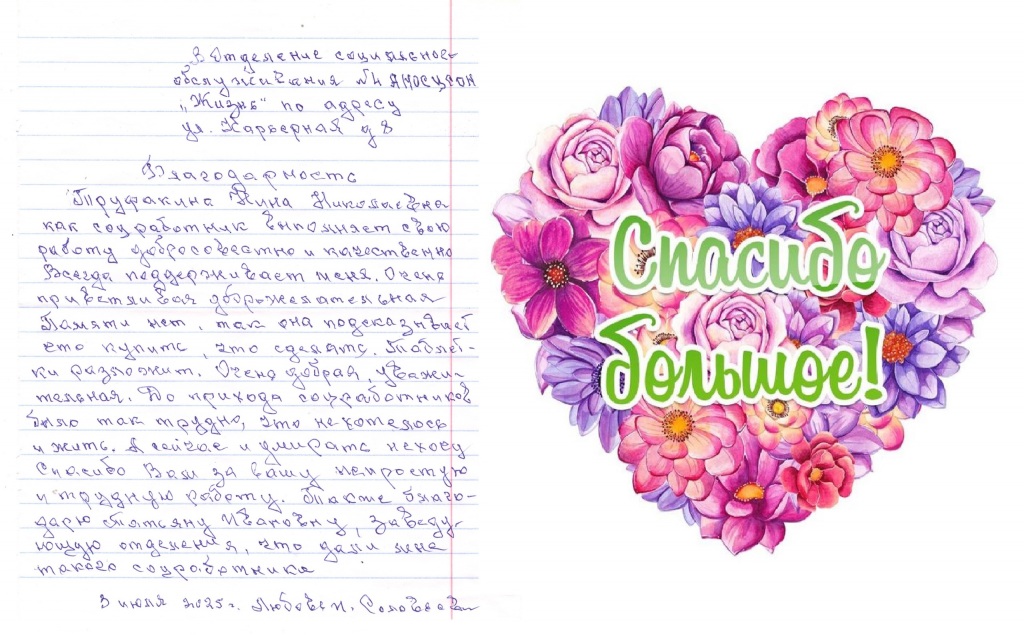 В Отделение социальное
обслуживания №4 АНОСЦСОН
"Жизнь" по адресу
ул. Карьерная д 8
Благодарность
Труфакина Нина Николаевна
как соцработник выполняет свою
работу добросовестно и качественно
Всегда поддерживает меня. Очень
приветливая доброжелательная
Памяти нет, так она подсказывает
что купить, что сделать. Таблет-
ки разложит. Очень добрая, уважи-
тельная. До прихода соцработников
было так трудно, что нехотелось
и жить. А сейчас и умирать нехочу
Спасибо Вам за вашу непростую
и трудную работу. Также благо-
дарю Татьяну Ивановну, заведу-
ющую отделения, что дали мне
такого соцработника
3 июля 2025г. Любовь И.
Спасибо
большое!